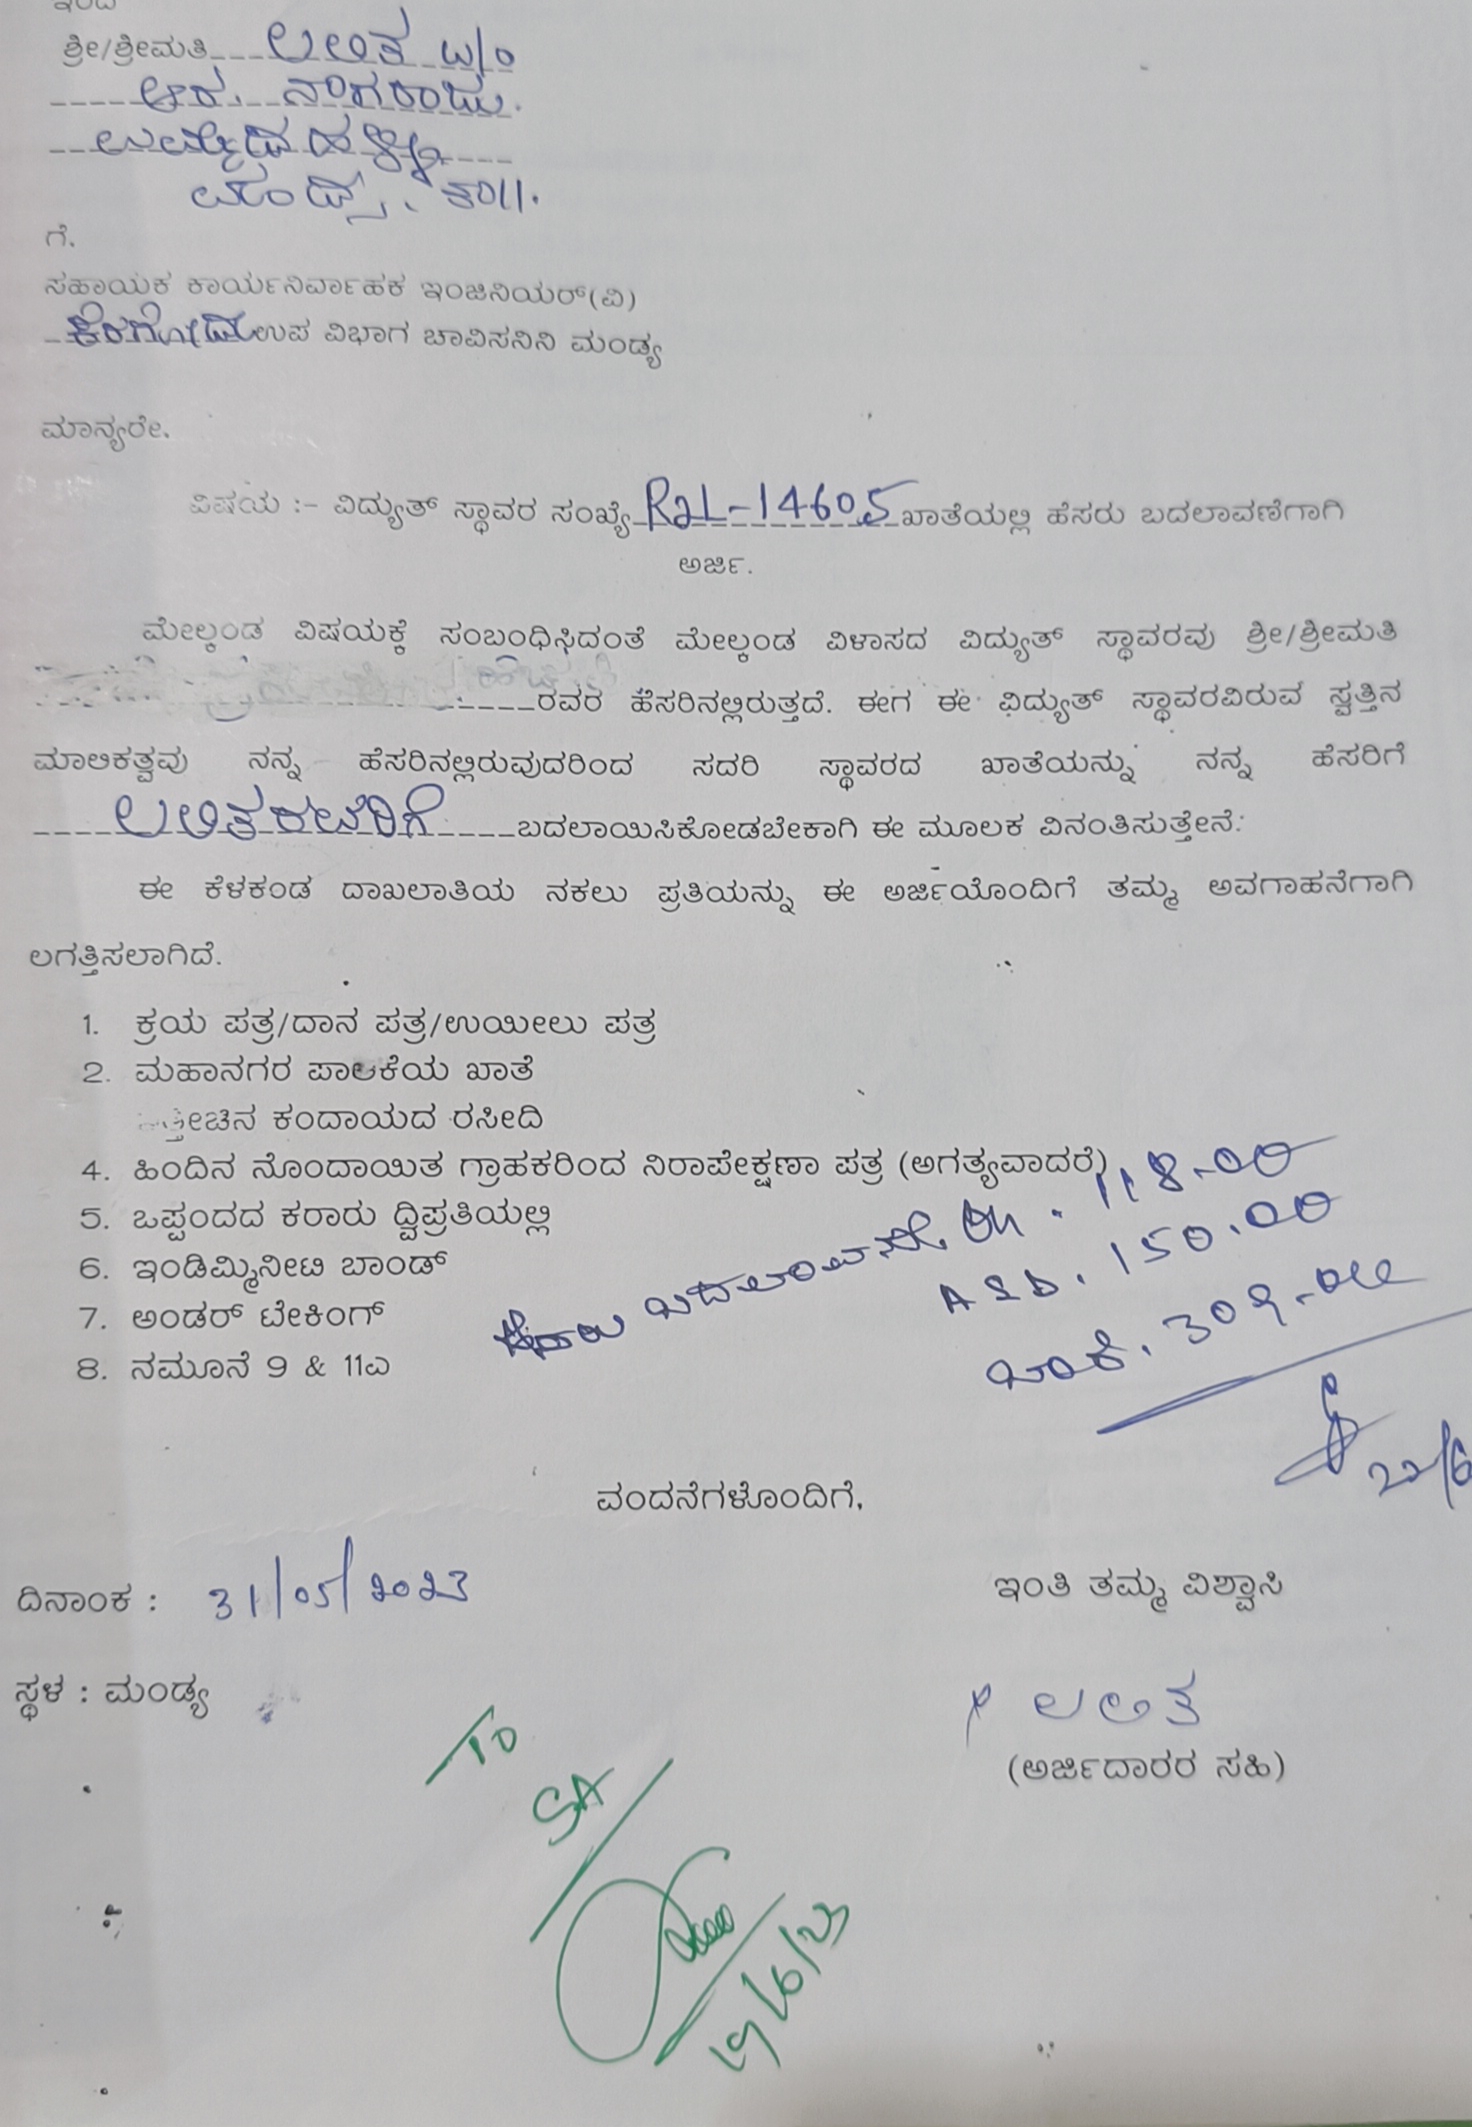 ಇಂದ
ಶ್ರೀ/ಶ್ರೀಮತಿ ಲಲಿತ w/o
ಆರ್. ನಾಗರಾಜು.
ಮಂಡ್ಯ. ತಾ||.
ಗೆ.
ಸಹಾಯಕ ಕಾರ್ಯನಿರ್ವಾಹಕ ಇಂಜಿನಿಯರ್(ವಿ)
ಕೆರಗೋಡು ಉಪ ವಿಭಾಗ ಚಾವಿಸನಿನಿ ಮಂಡ್ಯ
ಮಾನ್ಯರೇ.
ವಿಷಯ :- ವಿದ್ಯುತ್ ಸ್ಥಾವರ ಸಂಖ್ಯೆ RJL-14605 ಖಾತೆಯಲ್ಲಿ ಹೆಸರು ಬದಲಾವಣೆಗಾಗಿ
ಅರ್ಜಿ.
ಮೇಲ್ಕಂಡ ವಿಷಯಕ್ಕೆ ಸಂಬಂಧಿಸಿದಂತೆ ಮೇಲ್ಕಂಡ ವಿಳಾಸದ ವಿದ್ಯುತ್ ಸ್ಥಾವರವು ಶ್ರೀ/ಶ್ರೀಮತಿ
ರವರ ಹೆಸರಿನಲ್ಲಿರುತ್ತದೆ. ಈಗ ಈ ವಿದ್ಯುತ್ ಸ್ಥಾವರವಿರುವ ಸ್ವತ್ತಿನ
ಮಾಲಿಕತ್ವವು ನನ್ನ ಹೆಸರಿನಲ್ಲಿರುವುದರಿಂದ ಸದರಿ ಸ್ಥಾವರದ ಖಾತೆಯನ್ನು ನನ್ನ ಹೆಸರಿಗೆ
ಲಲಿತ ಬದಲಾಯಿಸಿಕೋಡಬೇಕಾಗಿ ಈ ಮೂಲಕ ವಿನಂತಿಸುತ್ತೇನೆ.
ಈ ಕೆಳಕಂಡ ದಾಖಲಾತಿಯ ನಕಲು ಪ್ರತಿಯನ್ನು ಈ ಅರ್ಜಿಯೊಂದಿಗೆ ತಮ್ಮ ಅವಗಾಹನೆಗಾಗಿ
ಲಗತ್ತಿಸಲಾಗಿದೆ.
1. ಕ್ರಯ ಪತ್ರ/ದಾನ ಪತ್ರ/ಉಯೀಲು ಪತ್ರ
2. ಮಹಾನಗರ ಪಾಲಕೆಯ ಖಾತೆ
ತ್ತೀಚಿನ ಕಂದಾಯದ ರಸೀದಿ
4. ಹಿಂದಿನ ನೊಂದಾಯಿತ ಗ್ರಾಹಕರಿಂದ ನಿರಾಪೇಕ್ಷಣಾ ಪತ್ರ (ಅಗತ್ಯವಾದರೆ)
5. ಒಪ್ಪಂದದ ಕರಾರು ದ್ವಿಪ್ರತಿಯಲ್ಲಿ
6. ಇಂಡಿಮ್ಮಿನೀಟಿ ಬಾಂಡ್
7. ಅಂಡರ್ ಟೇಕಿಂಗ್
8. ನಮೂನೆ 9 & 11ಎ
ಹೆಸರು ಬದಲಾವಣೆ 118-00
ASD. 150.00
ಬಾಕಿ. 309-00
22/6
ವಂದನೆಗಳೊಂದಿಗೆ,
ದಿನಾಂಕ : 31/05/2023
ಇಂತಿ ತಮ್ಮ ವಿಶ್ವಾಸಿ
ಸ್ಥಳ : ಮಂಡ್ಯ
ಲಲಿತ
(ಅರ್ಜಿದಾರರ ಸಹಿ)
TO
SA
19/6/23